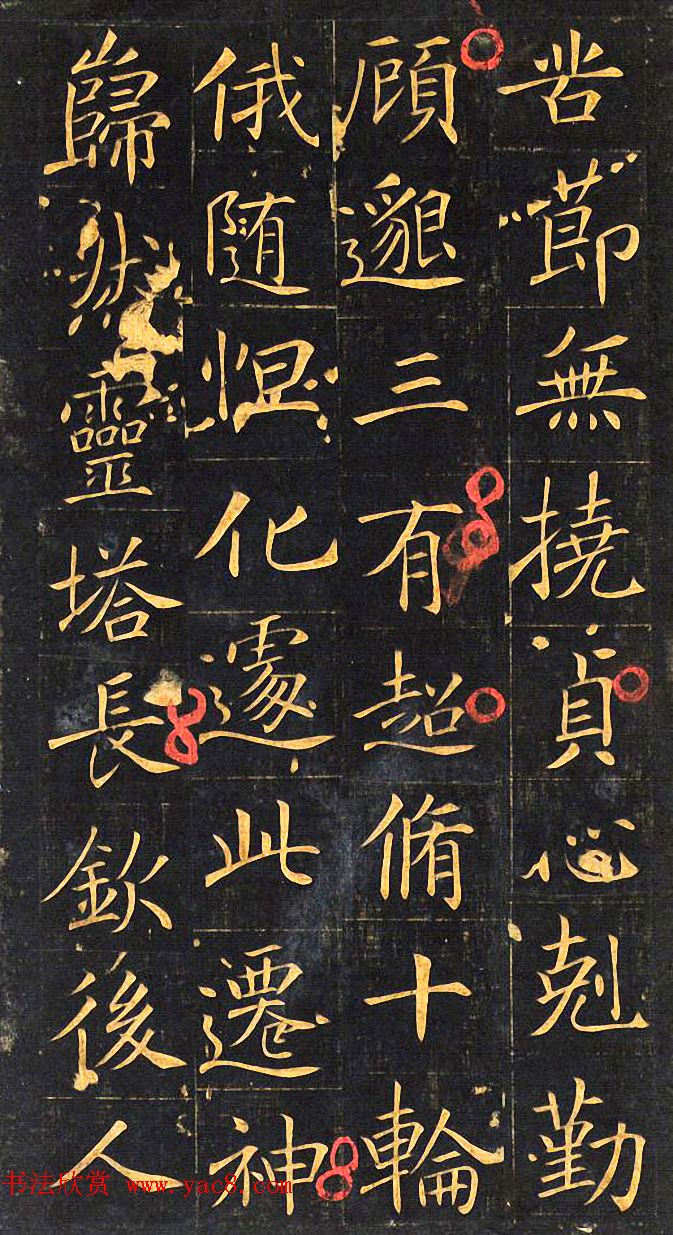 苦節無撓貞心剋勤
顧邈三有超脩十輪
俄随怛化遽此遷神
巋然靈塔長欽後人
书法欣赏 www.yac8.com